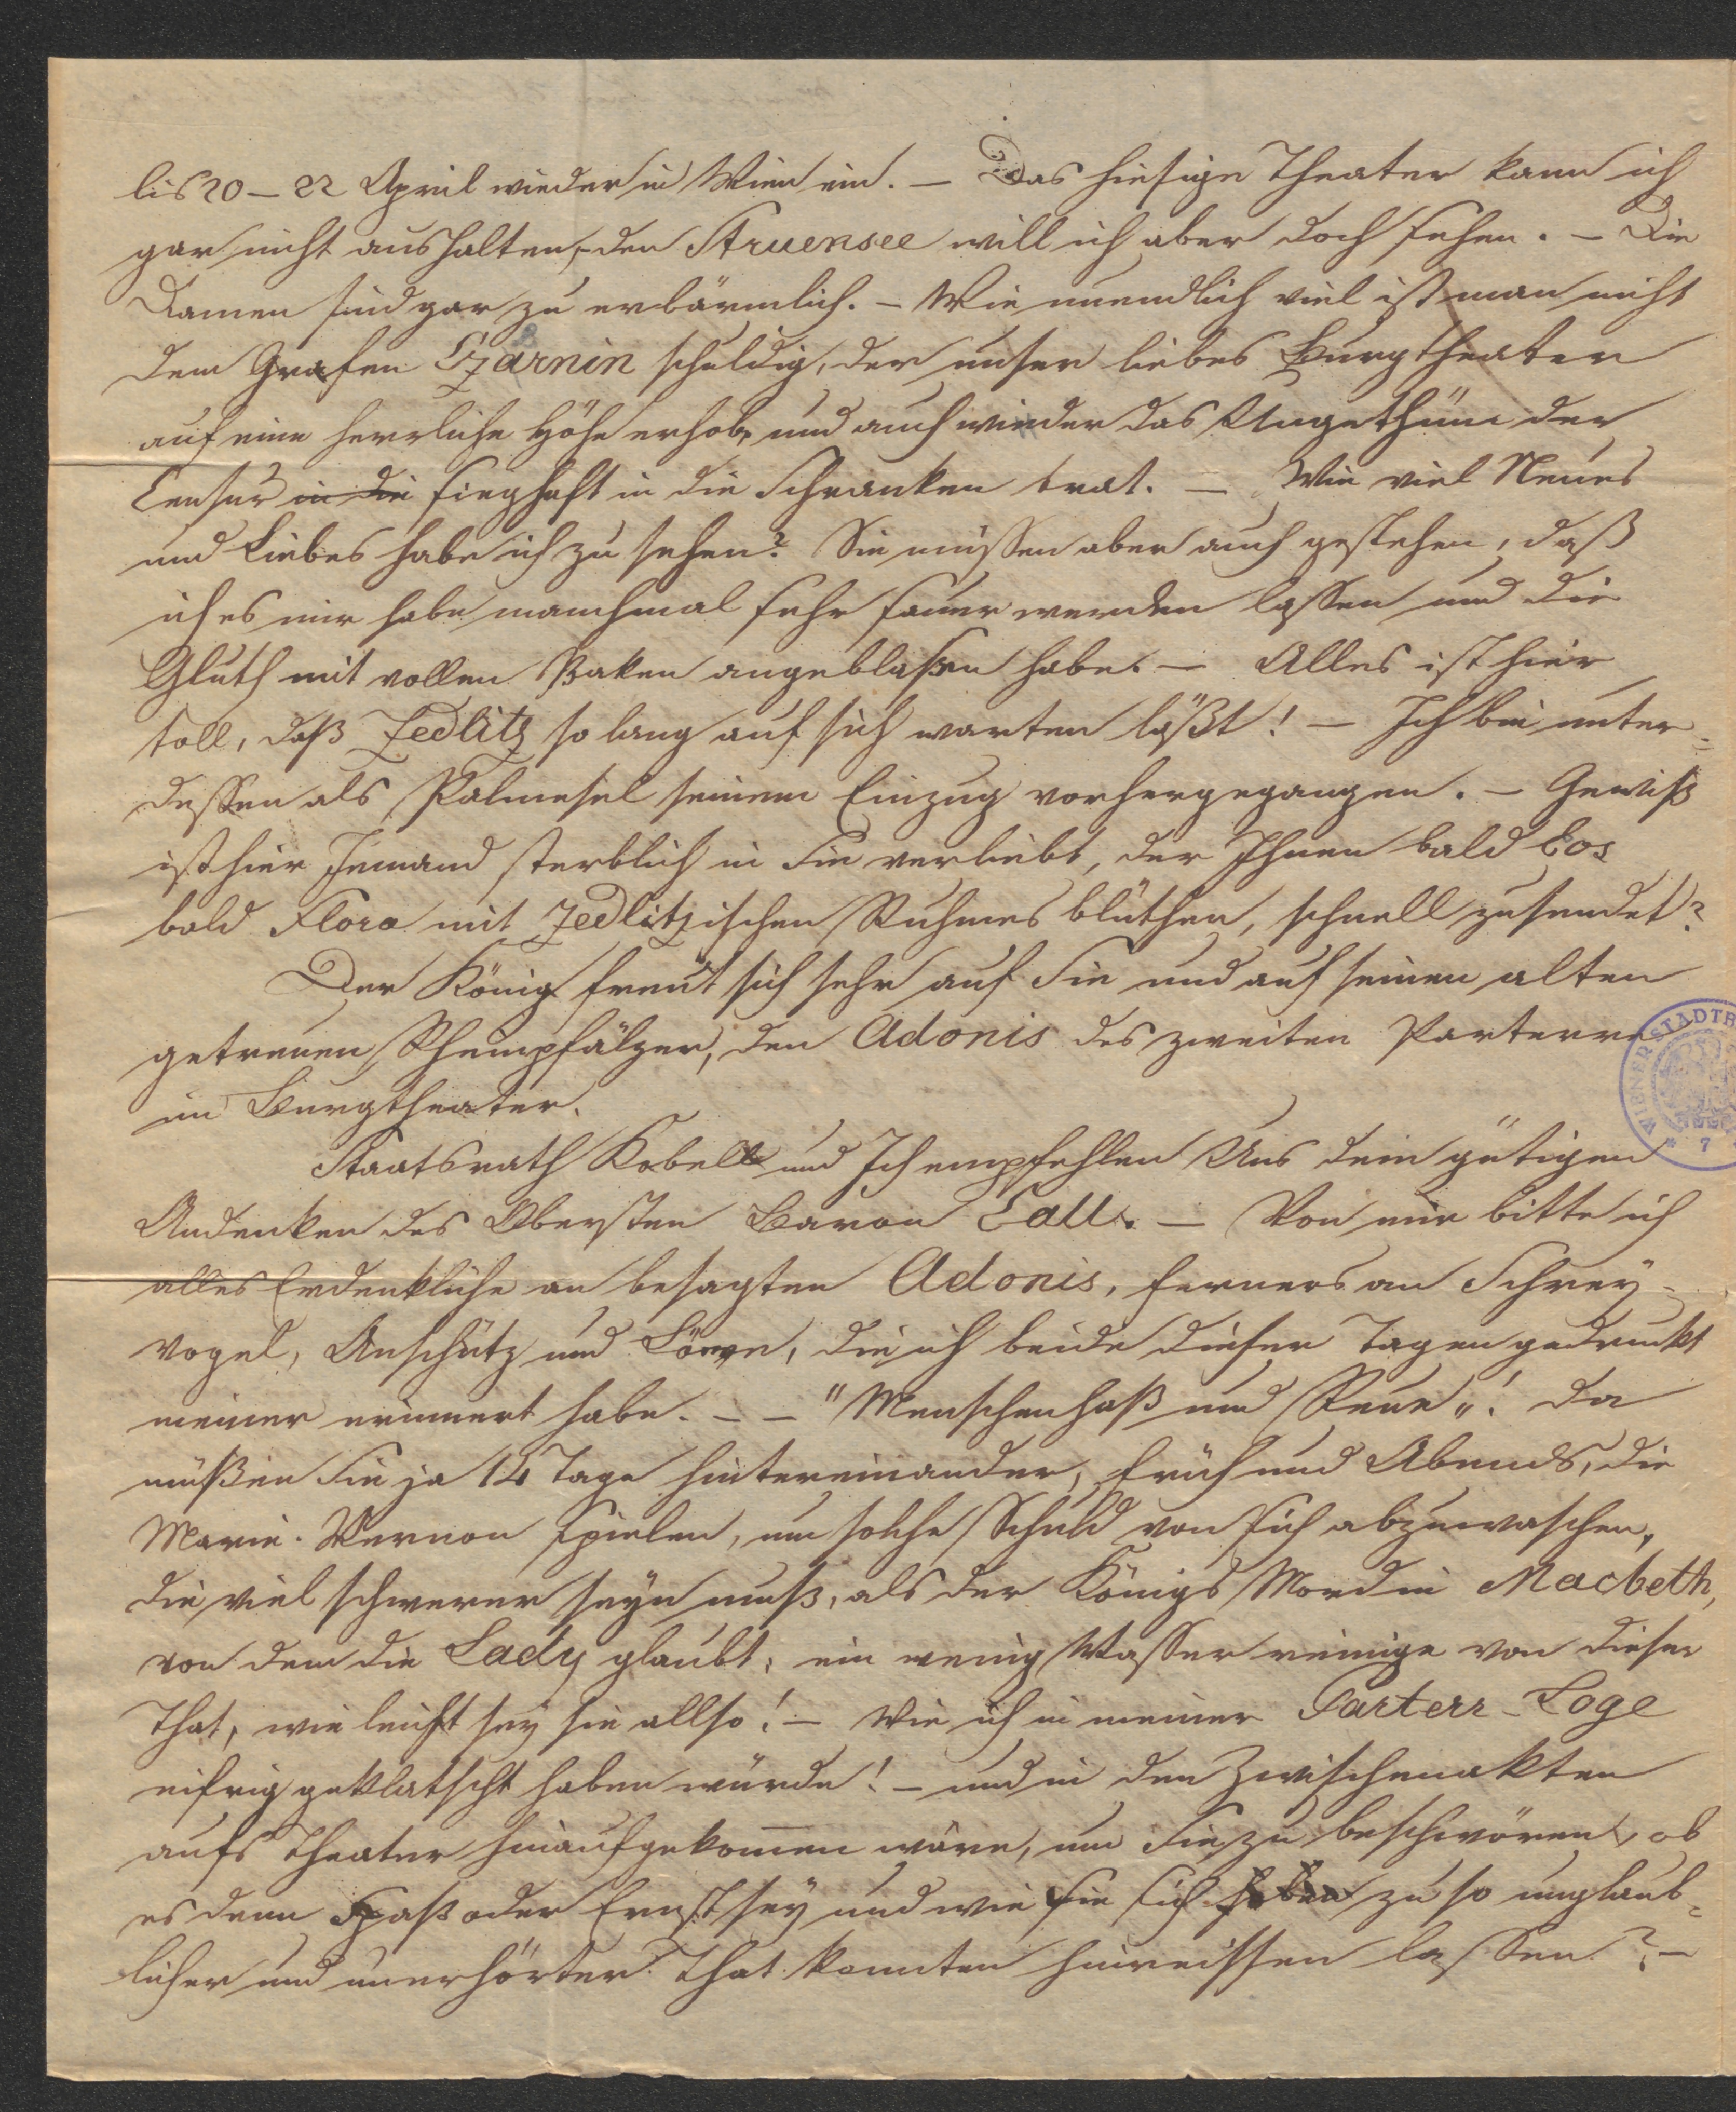 bis 20 – 22 April wieder in Wien ein. – Das hiesige Theater kann ich
gar nicht aushalten, den Struensee will ich aber doch sehen. – Die
Damen sind gar zu erbärmlich. – Wie unendlich viel ist man nicht
dem Grafen Czärnin schuldig, der unser liebes Burgtheater
auf eine herrliche Höhe erhob, und auch wieder das Ungethüm der
Censur in die sieghaft in die Schranken trat. – Wie viel Neues
und Liebes habe ich zu sehen? Sie müssen aber auch gestehen, daß
ich es mir habe manchmal sehr sauer werden lassen und die
Gluth mit vollen Baken angeblasen habe. – Alles ist hier
toll, daß Zedlitz so lang auf sich warten läßt! – Ich bin unter-
dessen als Palmesel seinem Einzug vorhergegangen. – Gewiß
ist hier Jemand sterblich in Sie verliebt, der Ihnen bald Eos
bald Flora mit Zedlitzischen Ruhmes blüthen, schnell zusendet?
Der König freut sich sehr auf Sie und auf seinen alten
getreuen Rheinpfälzer, den Adonis des zweiten Parterre
im Burgtheater.
Staatsrath Kobell und Ich empfehlen Uns dem gütigen
Andenken des Obersten Baron Call. – Von mir bitte ich
alles Erdenkliche an besagten Adonis, ferners an Schrey-
vogel, Anschütz und Löwe, die ich beide dieser Tagen gedruckt
meiner erinnert habe. – – "Menschenhaß und Reue"! Da
müßen Sie ja 14 Tage hintereinander, früh und Abends, die
Marie. Vernon spielen, um solche Schuld von sich abzuwaschen,
die viel schwerer seyn muß, als der Königs Mord in Macbeth,
von dem die Lady glaubt: ein wenig Wasser reinige von dieser
That, wie leicht sey sie allso! – Wie ich in meiner Parterr-Loge
eifrig geklatscht haben würde! – und in den Zwischenakten
aufs Theater hinaufgekommen wäre, um Sie zu beschwören, ob
es denn Spaß oder Ernst sey und wie Sie sich haben zu so unglaub-
licher und unerhörter That konnten hinreissen lassen? –
WIENER STADTB
7